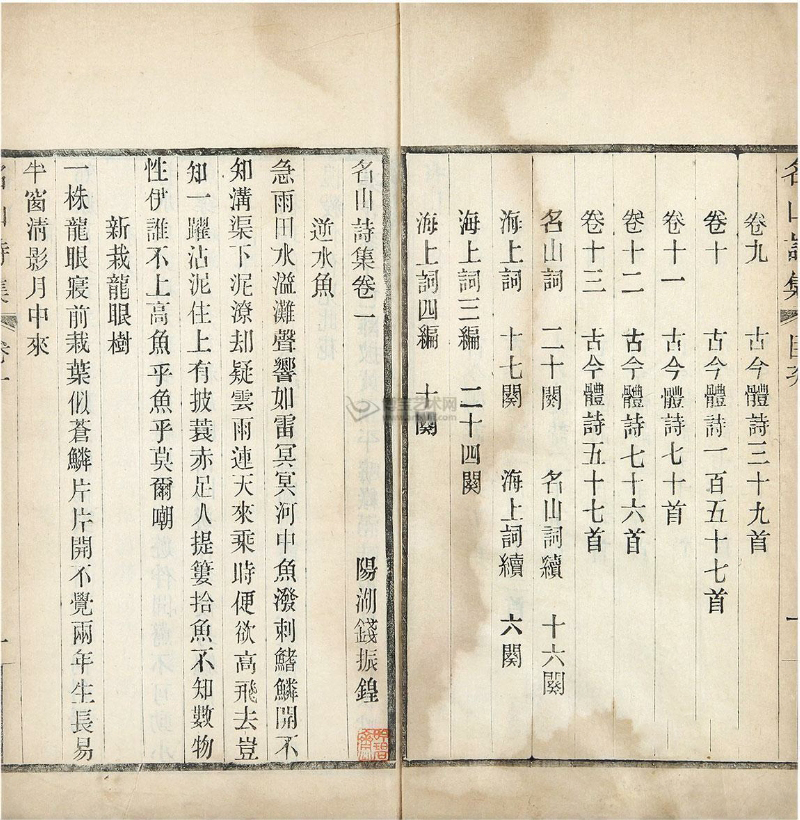 名山詩集 目錄 一
卷九 古今體詩三十九首
卷十 古今體詩一百五十七首
卷十一 古今體詩七十首
卷十二 古今體詩七十六首
卷十三 古今體詩五十七首
名山詞 二十闋 名山詞續 十六闋
海上詞 十七闋 海上詞續 六闋
海上詞三編 二十四闋
海上詞四編 十闋
名山詩集卷一 陽湖錢振鍠
逆水魚
急雨田水溢灘聲響如雷冥冥河中魚潑刺鰭鱗開不
知溝渠下泥潦却疑雲雨連天來乘時便欲高飛去豈
知一躍沾泥住上有披蓑赤足人提簍拾魚不知數物
性伊誰不上高魚乎魚乎莫爾嘲
新栽龍眼樹
一株龍眼寢前栽葉似蒼鱗片片開不覺兩年生長易
半窗清影月中來
名山詩集 卷一 一